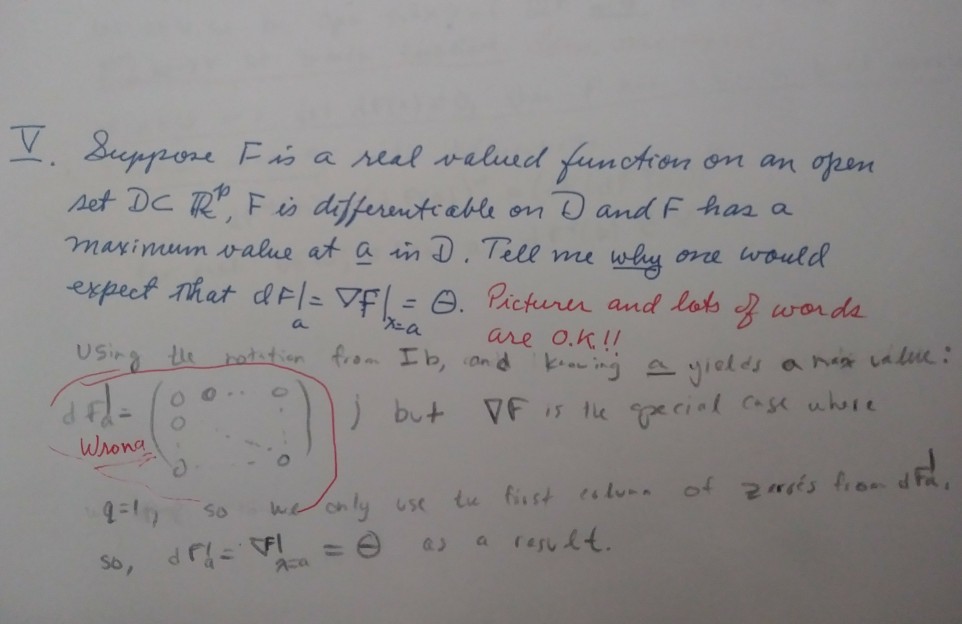 V. Suppose F is a real valued function on an open
set D ⊂ ℝᵖ, F is differentiable on D and F has a
maximum value at a in D. Tell me why one would
expect that dF|ₐ = ∇F|ₓ₌ₐ = Θ. Pictures and lots of words
are O.K.!!
Using the notation from Ib, and knowing a yields a max value:
dF|ₐ = (0 0 ·· 0 0 0 0) ; but ∇F is the special case where
Wrong
q=1, so we only use the first column of zeroes from dF|ₐ,
so, dF|ₐ = ∇F|ₓ₌ₐ = Θ as a result.